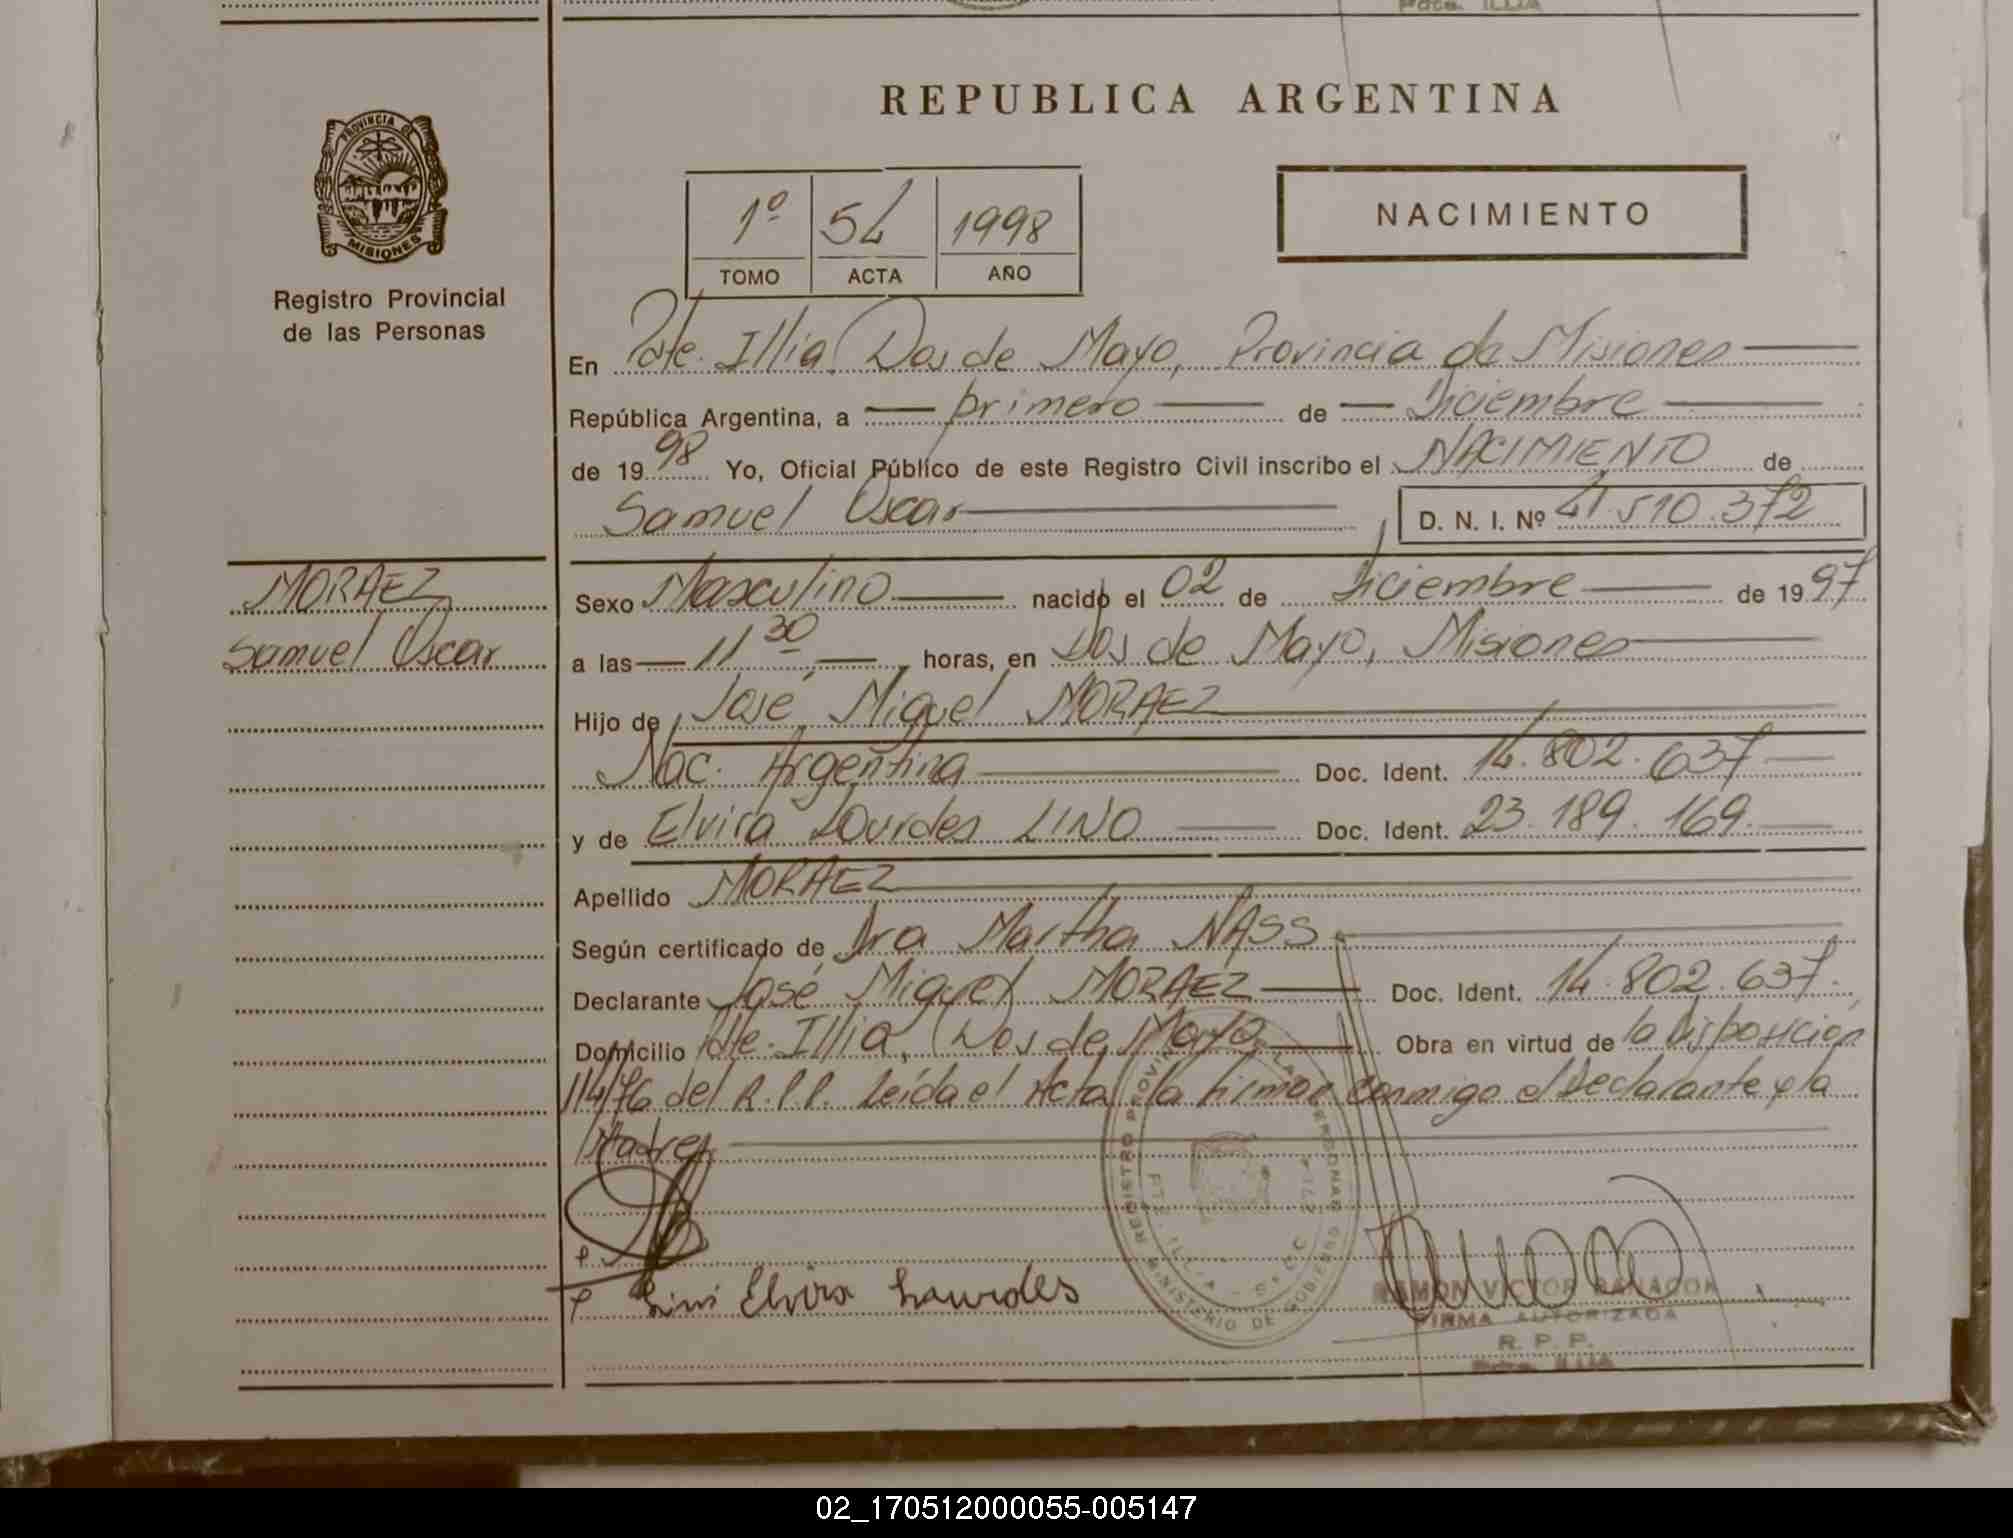 REPUBLICA ARGENTINA
PROVINCIA DE
MISIONES
Registro Provincial
de las Personas
1º 54 1998
TOMO ACTA AÑO
NACIMIENTO
En Pdte. Illia, Dos de Mayo, Provincia de Misiones
República Argentina, a primero de Diciembre
de 1998 Yo, Oficial Público de este Registro Civil inscribo el NACIMIENTO de
Samuel Oscar D. N. I. Nº 41.510.372
MORAEZ
Samuel Oscar
Sexo Masculino nacido el 02 de Diciembre de 1997
a las 11 30 horas, en Dos de Mayo, Misiones
Hijo de José Miguel MORAEZ
Nac. Argentina Doc. Ident. 14.802.637
y de Elvira Lourdes LINO Doc. Ident. 23.189.169.
Apellido MORAEZ
Según certificado de Dra Martha NASS
Declarante José Miguel MORAEZ Doc. Ident. 14.802.637.
Domicilio Pdte. Illia, Dos de Mayo Obra en virtud de la Disposición
114/76 del R.P.P. Leída el Acta la firman conmigo el Declarante y la
Madre
Lino Elvira Lourdes
REGISTRO PROVINCIAL DE LAS PERSONAS
MINISTERIO DE GOBIERNO
PTE. ILLIA
RAMON VICTOR
FIRMA AUTORIZADA
R. P. P.
Pdte. ILLIA
02_170512000055-005147